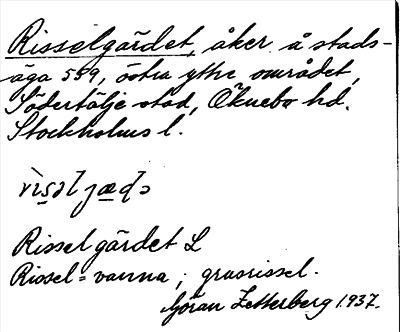 Risselgärdet, åker å stads-
äga 559, östra yttre området,
Södertälje stad, Öknebo hd.
Stockholms l.
Rissel gärdet L
Rissel = vanna; grusrissel.
Göran Zetterberg 1937.